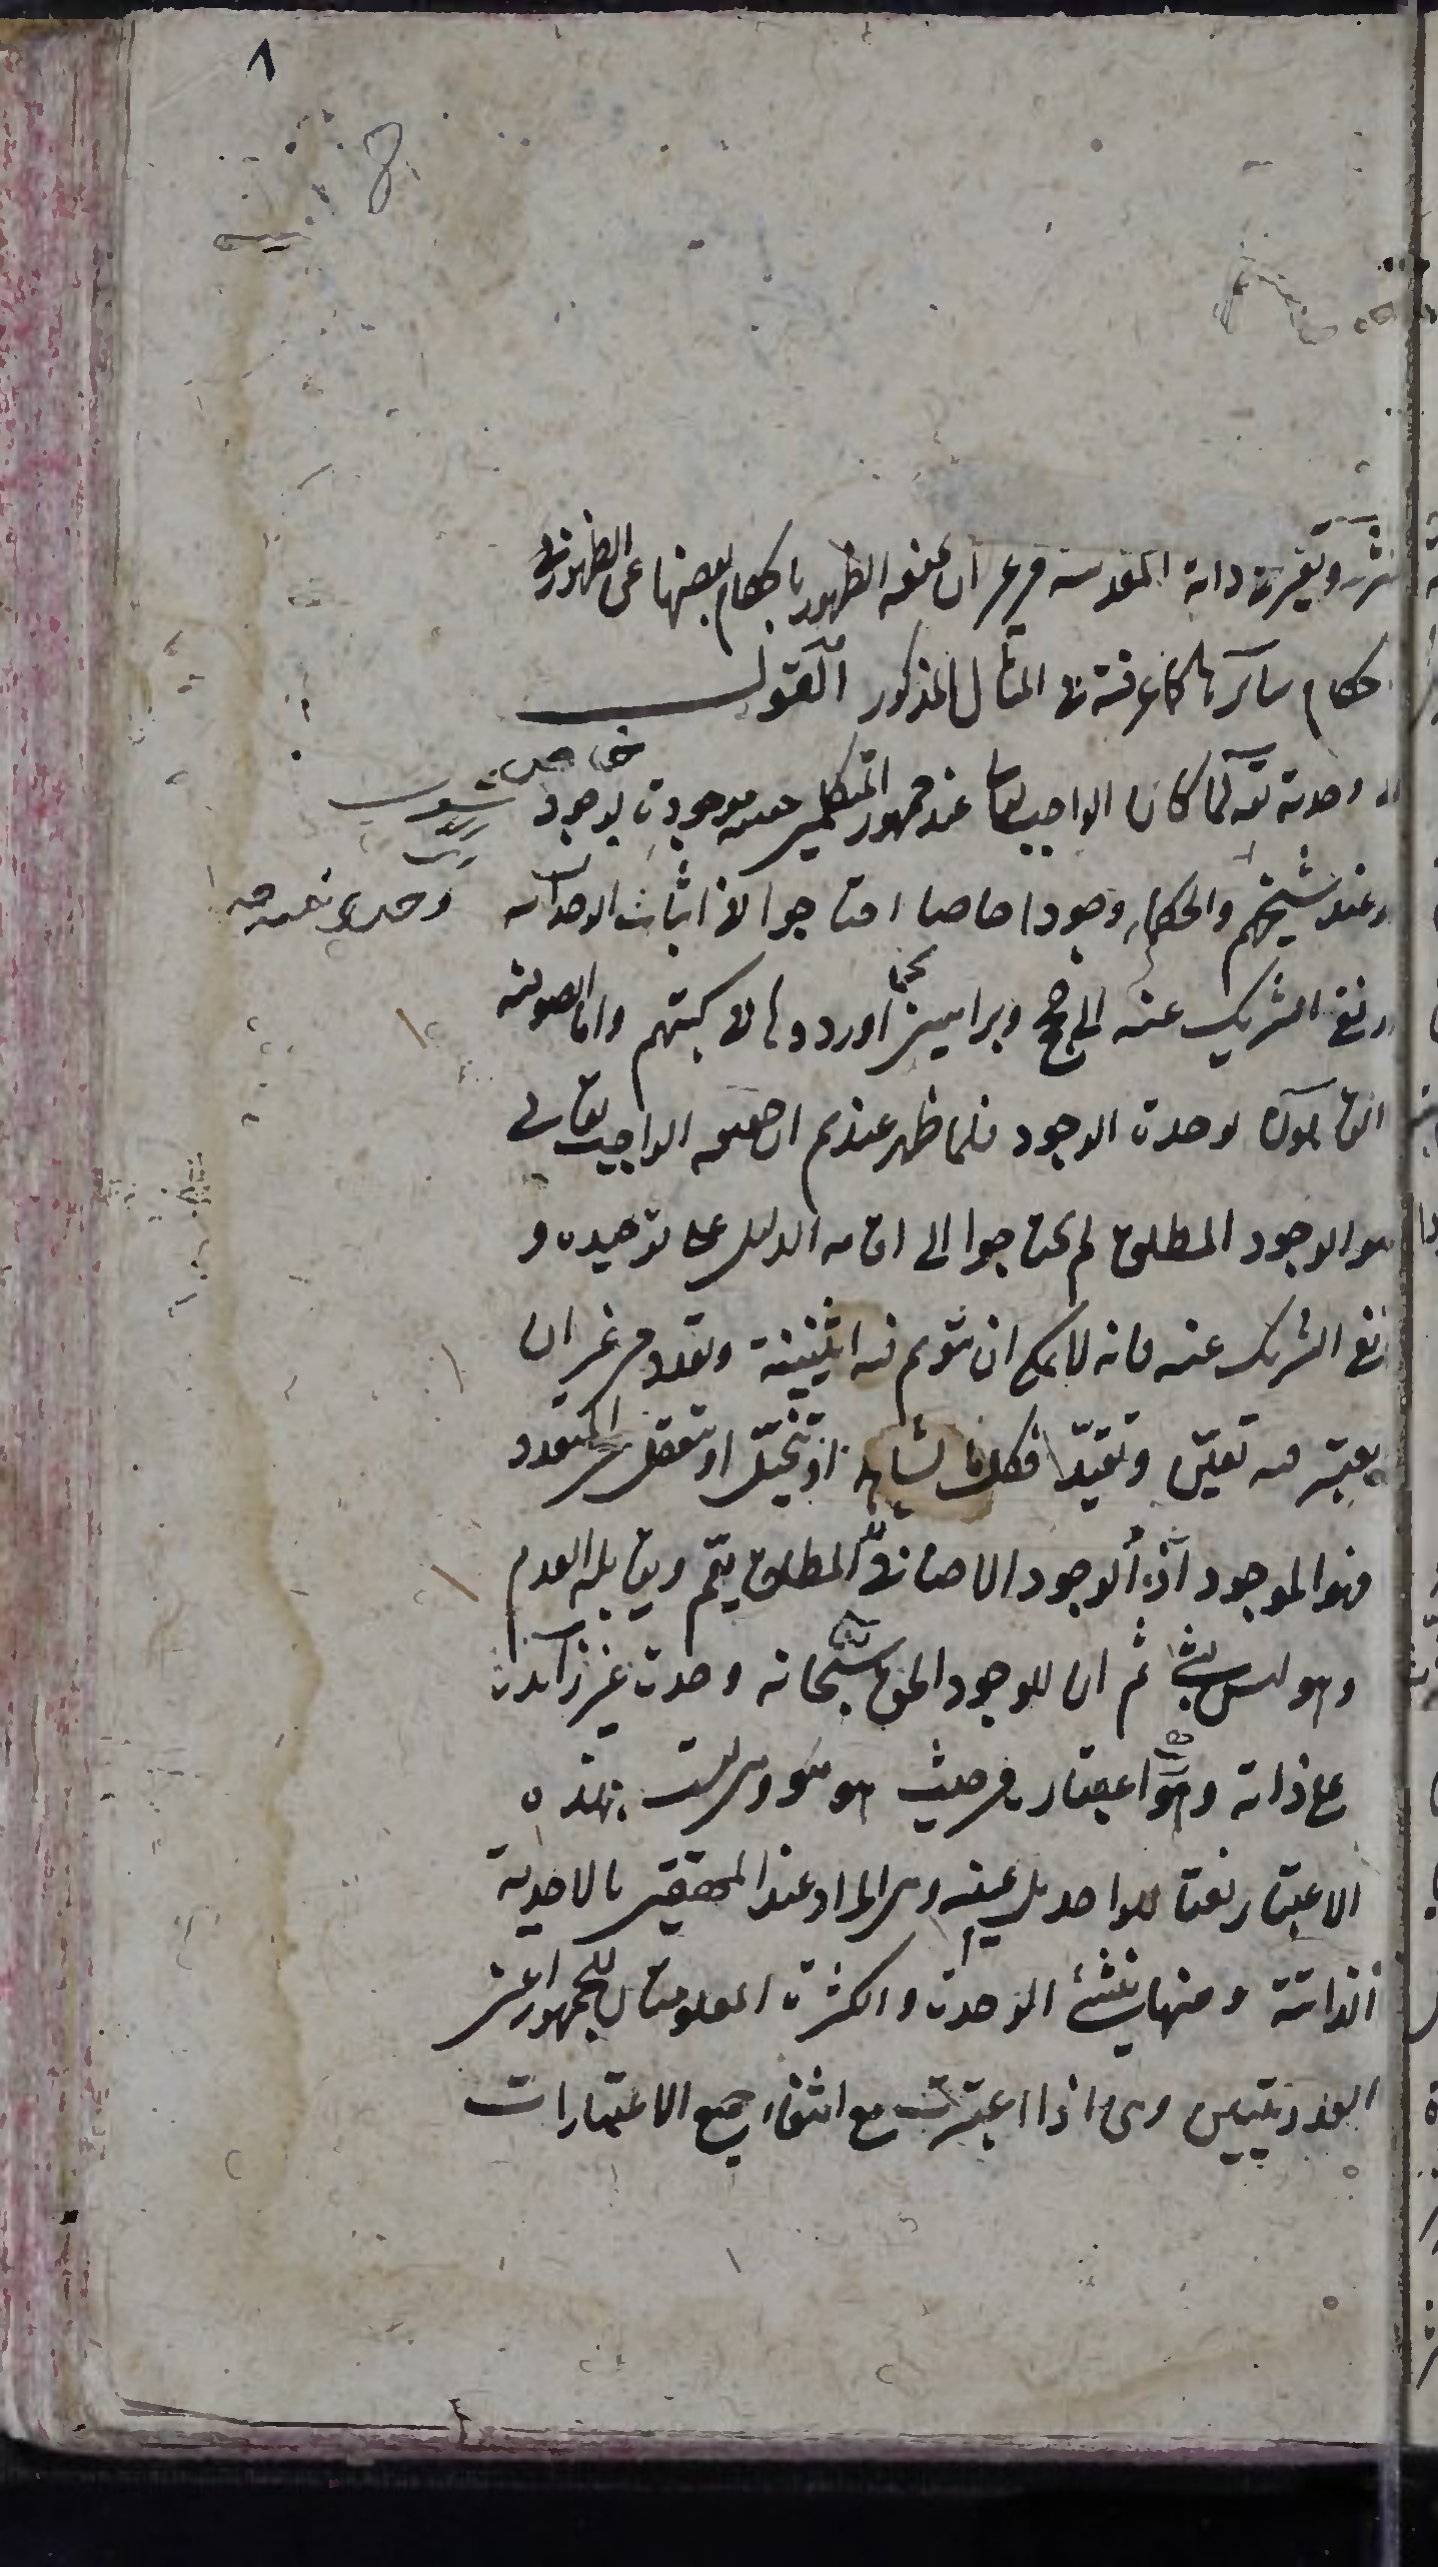 ٨
8
وتغير في ذاته المقدسة من غير ان يمنعه الظهور باحكام بعضها عن الظهور في
احكام سائرها كما عرفته في المثال المذكور القول
في وحدته تعالى لما كان الواجب تعالى عند جمهور المتكلمين حقيقة موجودة بوجود خاص
وعند شيخهم والحكماء وجودا خاصا احتاجوا في اثبات الوحدانية
ونفى الشريك عنه الى حجج وبراهين كما اوردوها في كتبهم واما الصوفية
القائلون بوحدة الوجود فلما ظهر عندهم ان حقيقة الواجب تعالى
هو الوجود المطلق لم يحتاجوا الى اقامة الدليل على توحيده و
نفى الشريك عنه فانه لا يمكن ان يتوهم فيه اثنينية وتعدد من غير ان
يعتبر فيه تعين وتقيد فكل ما يشاهد او يتخيل او يتعقل من المتعدد
فهو الموجود او الوجود الاضافى لا المطلق نعم ويقابله العدم
وهو ليس بشئ ثم ان للوجود الحق سبحانه وحدة غير زائدة
على ذاته وهو اعتباره من حيث هو هو وهي ليست بهذه
الاعتبار نعتا للواحد بل عينه وهي المراد عند المحققين بالاحدية
الذاتية ومنها ينتشئ الوحدة والكثرة المعلومتان للجمهور اعنى
العدديتين وهي اذا اعتبرت مع انتفاء جميع الاعتبارات